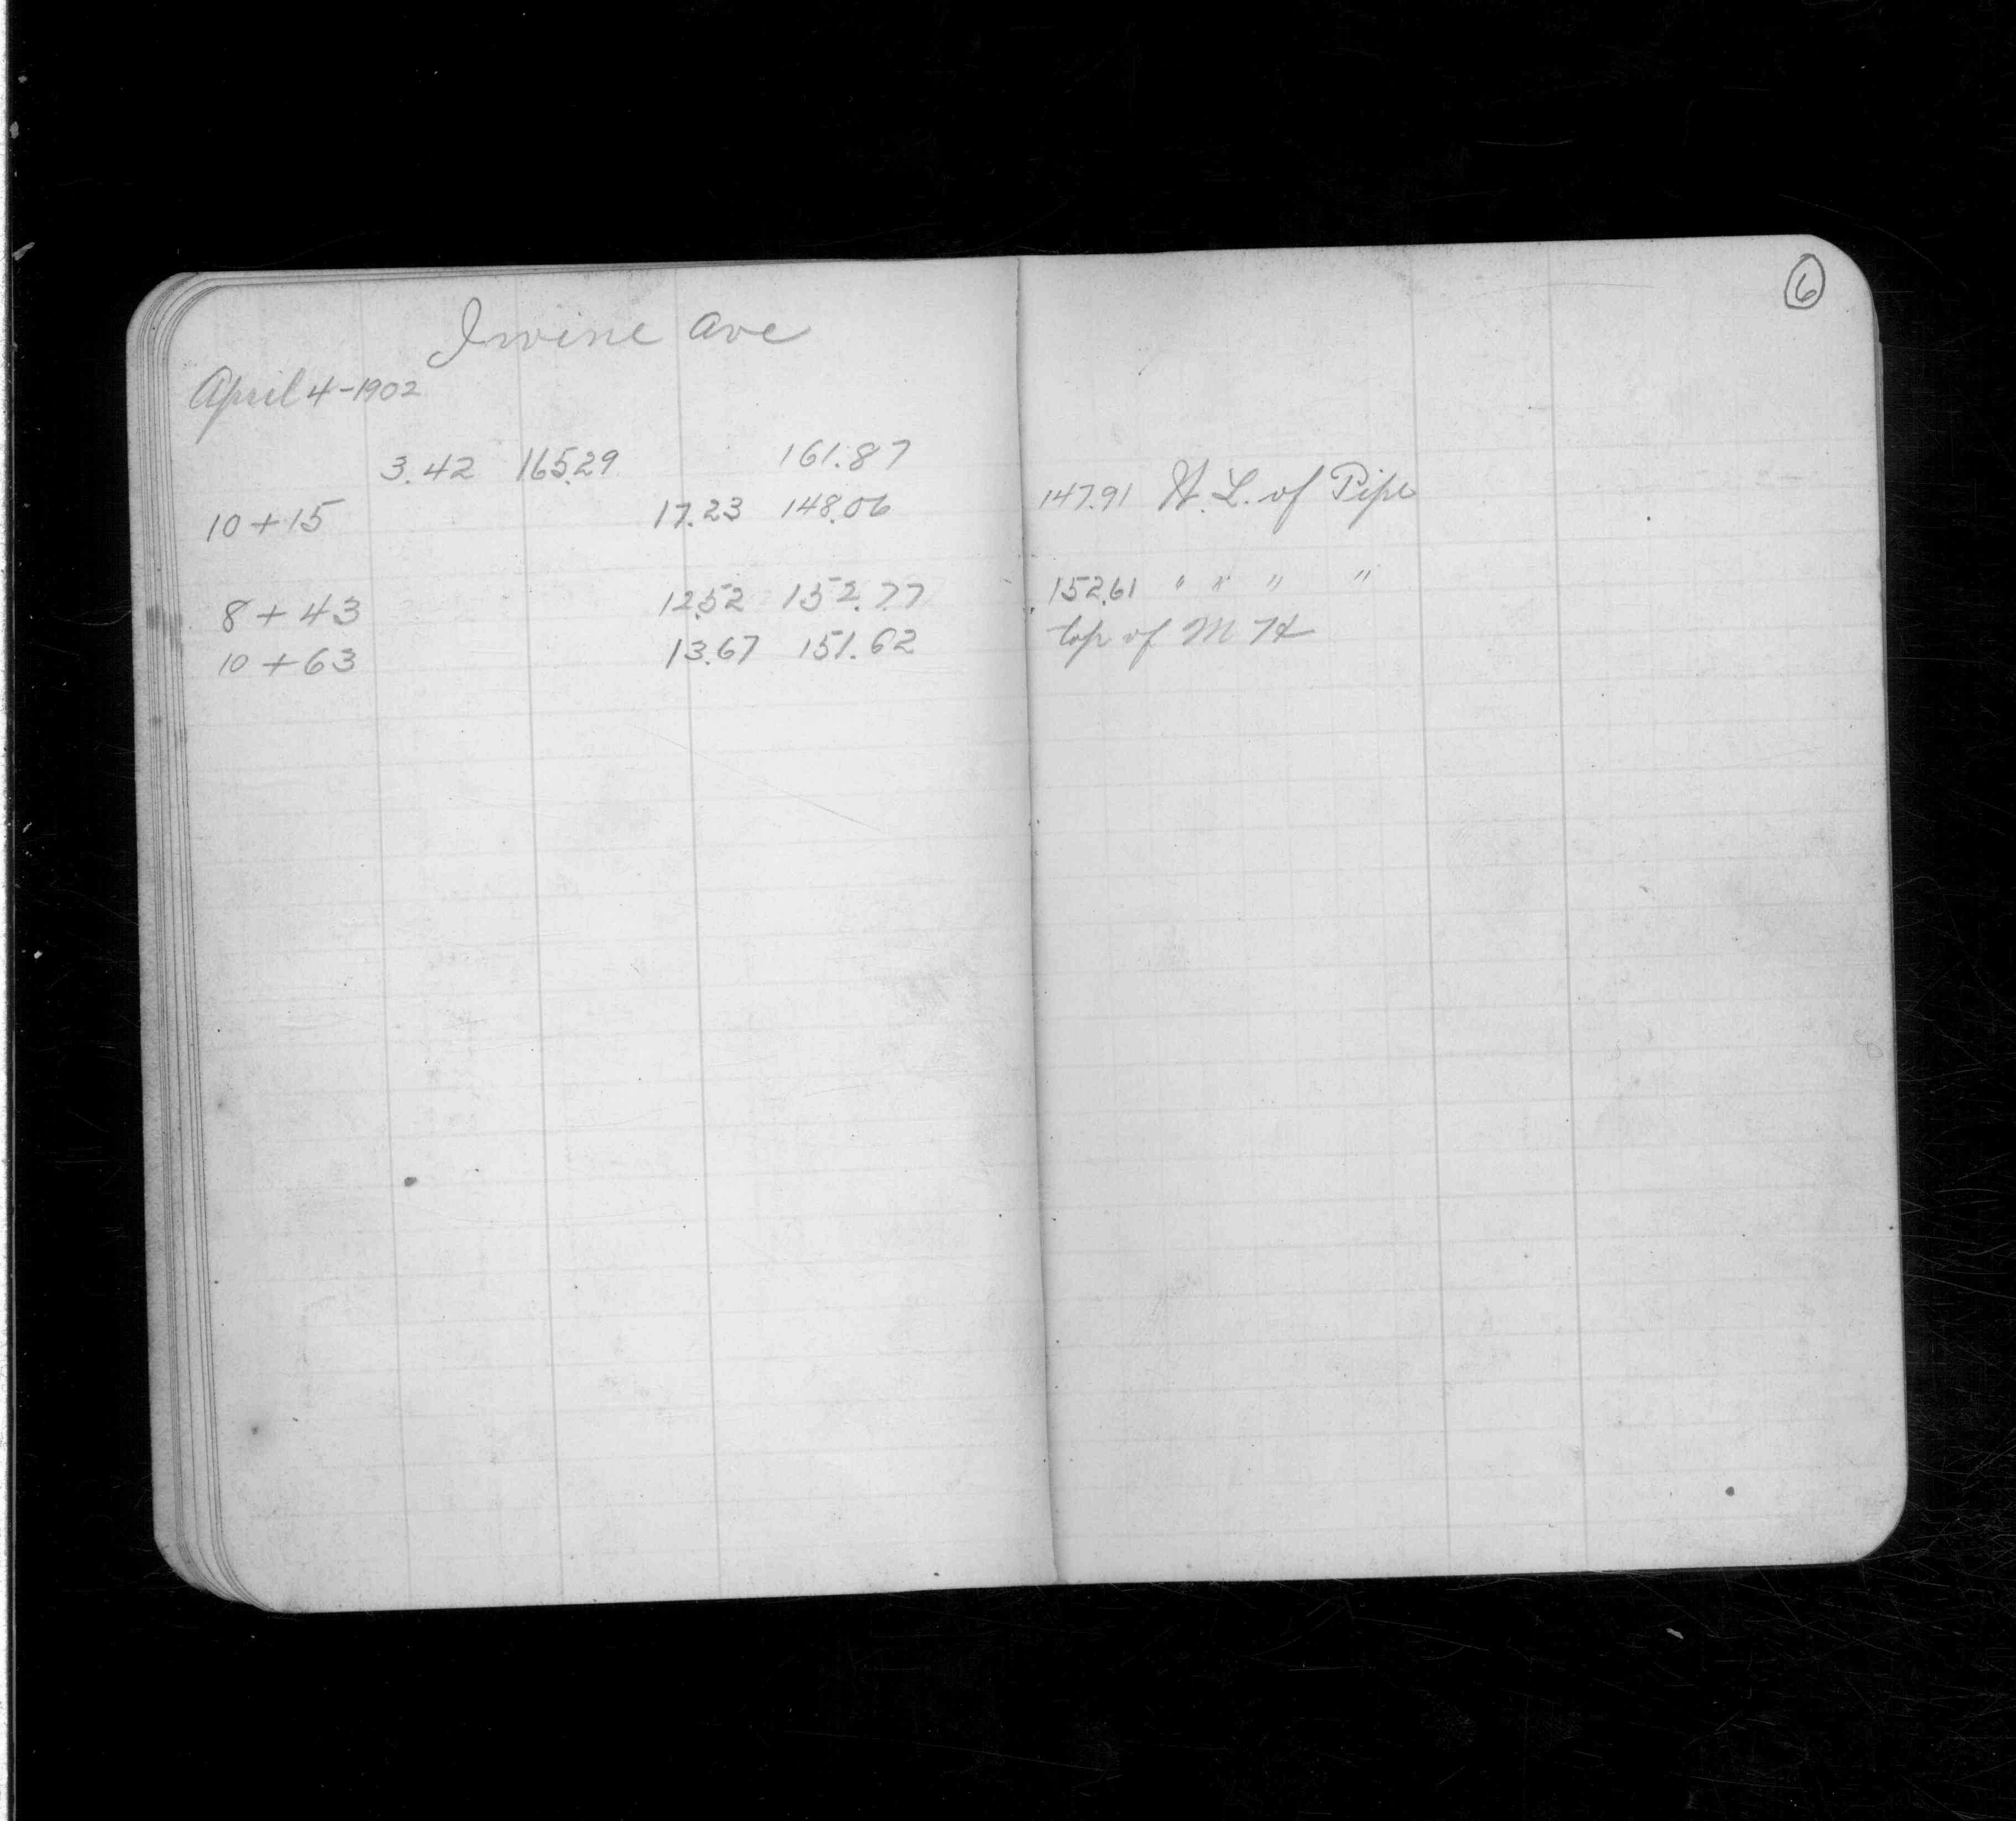 6
Irvine Ave
April 4-1902
3.42 165.29 161.87
10+15 17.23 148.06 147.91 W.L. of Pipe
8+43 12.52 152.77 152.61 " " " "
10+63 13.67 151.62 top of MH